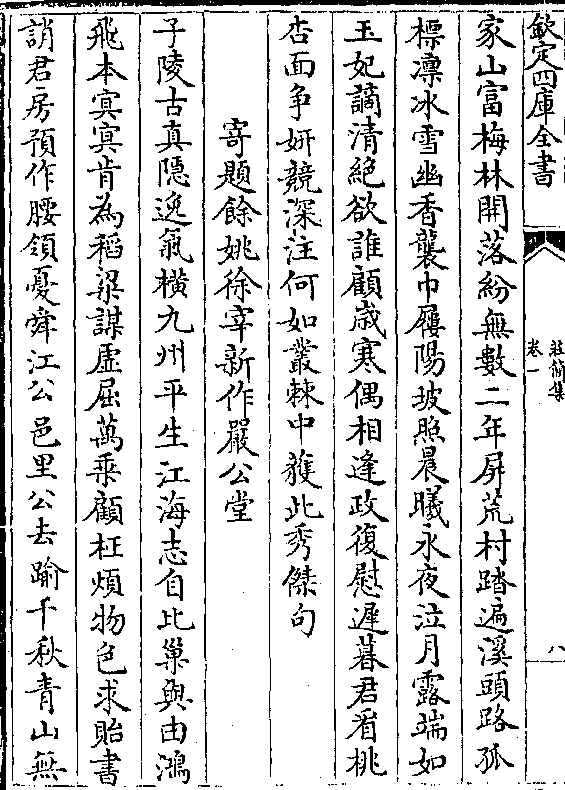 欽定四庫全書
莊簡集
卷一
八
家山富梅林開落紛無數二年屏荒村踏遍溪頭路孤
標凛冰雪幽香襲巾屨陽坡照晨曦永夜泣月露端如
玉妃謫清絕欲誰顧歲寒偶相逢政復慰遲暮君看桃
杏面争妍競深注何如叢棘中獲此秀傑句
寄題餘姚徐宰新作嚴公堂
子陵古真隱逸氣横九州平生江海志自比巢與由鴻
飛本㝠㝠肯為稻粱謀虚屈萬乘顧枉煩物色求貽書
誚君房預作腰領憂舜江公邑里公去踰千秋青山無